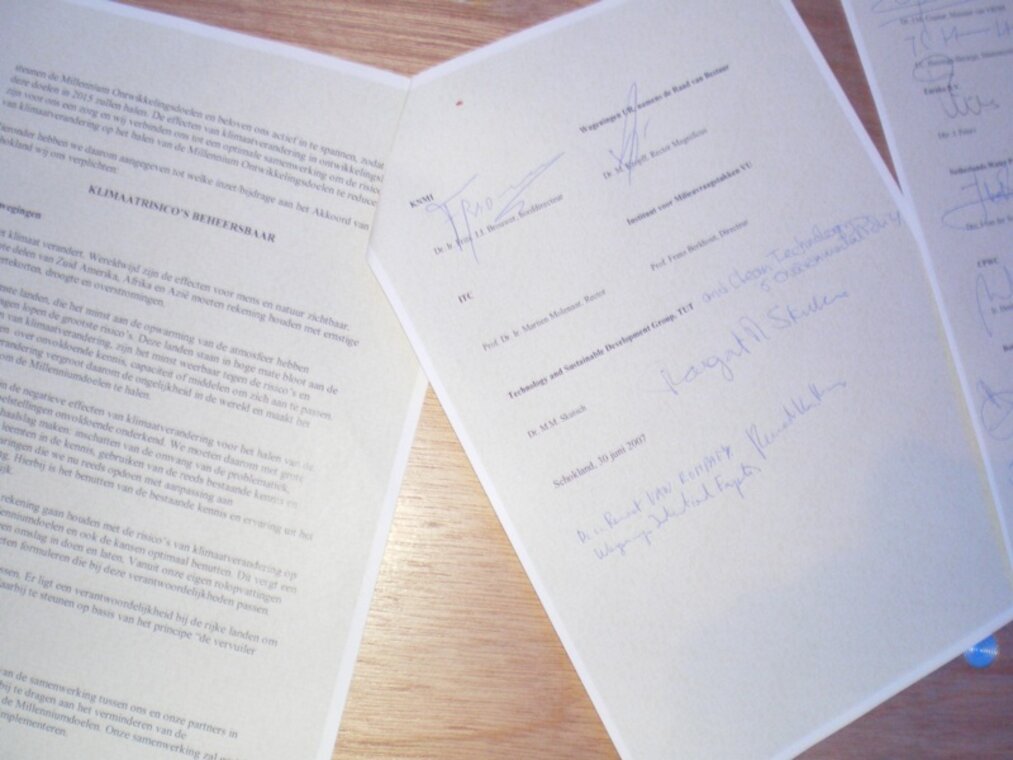 steunen de Millennium Ontwikkelingsdoelen en beloven ons actief in te spannen, zodat
deze doelen in 2015 zullen halen. De effecten van klimaatverandering in ontwikkelings
zijn voor ons een zorg en wij verbinden ons tot een optimale samenwerking om de risico
van klimaatverandering op het halen van de Millennium Ontwikkelingsdoelen te reduce
ieronder hebben we daarom aangegeven tot welke inzet/bijdrage aan het Akkoord van
hokland wij ons verplichten:
KLIMAATRISICO'S BEHEERSBAAR
wegingen
t klimaat verandert. Wereldwijd zijn de effecten voor mens en natuur zichtbaar.
te delen van Zuid Amerika, Afrika en Azië moeten rekening houden met ernstige
ertekorten, droogte en overstromingen.
mste landen, die het minst aan de opwarming van de atmosfeer hebben
gen lopen de grootste risico's. Deze landen staan in hoge mate bloot aan de
n van klimaatverandering, zijn het minst weerbaar tegen de risico's en
over onvoldoende kennis, capaciteit of middelen om zich aan te passen.
randering vergroot daarom de ongelijkheid in de wereld en maakt het
om de Millenniumdoelen te halen.
n de negatieve effecten van klimaatverandering voor het halen van de
elstellingen onvoldoende onderkend. We moeten daarom met grote
haalslag maken: inschatten van de omvang van de problematiek,
leemten in de kennis, gebruiken van de reeds bestaande kennis en
aringen die we nu reeds opdoen met aanpassing aan
g. Hierbij is het benutten van de bestaande kennis en ervaring uit het
ijk.
rekening gaan houden met de risico's van klimaatverandering op
enniumdoelen en ook de kansen optimaal benutten. Dit vergt een
en omslag in doen en laten. Vanuit onze eigen rolopvattingen
eten formuleren die bij deze verantwoordelijkheden passen.
ssen. Er ligt een verantwoordelijkheid bij de rijke landen om
aarbij te steunen op basis van het principe "de vervuiler
van de samenwerking tussen ons en onze partners in
bij te dragen aan het verminderen van de
de Millenniumdoelen. Onze samenwerking zal
implementeren.
Wageningen UR, namens de Raad van Bestuur
Dr. M. Kropff, Rector Magnificus
KNMI
Dr. Ir. Frits J.J. Brouwer, Hoofddirecteur
Instituut voor Milieuvraagstukken VU
Prof. Frans Berkhout, Directeur
ITC
Prof. Dr. Ir. Martien Molenaar, Rector
Technology and Sustainable Development Group, TUT and Clean Technology
& Environmental Policy
Dr. M.M. Skutsch
Schokland, 30 juni 2007
VAN ROMPAEY
Eureko B.V.
Nederlands Water